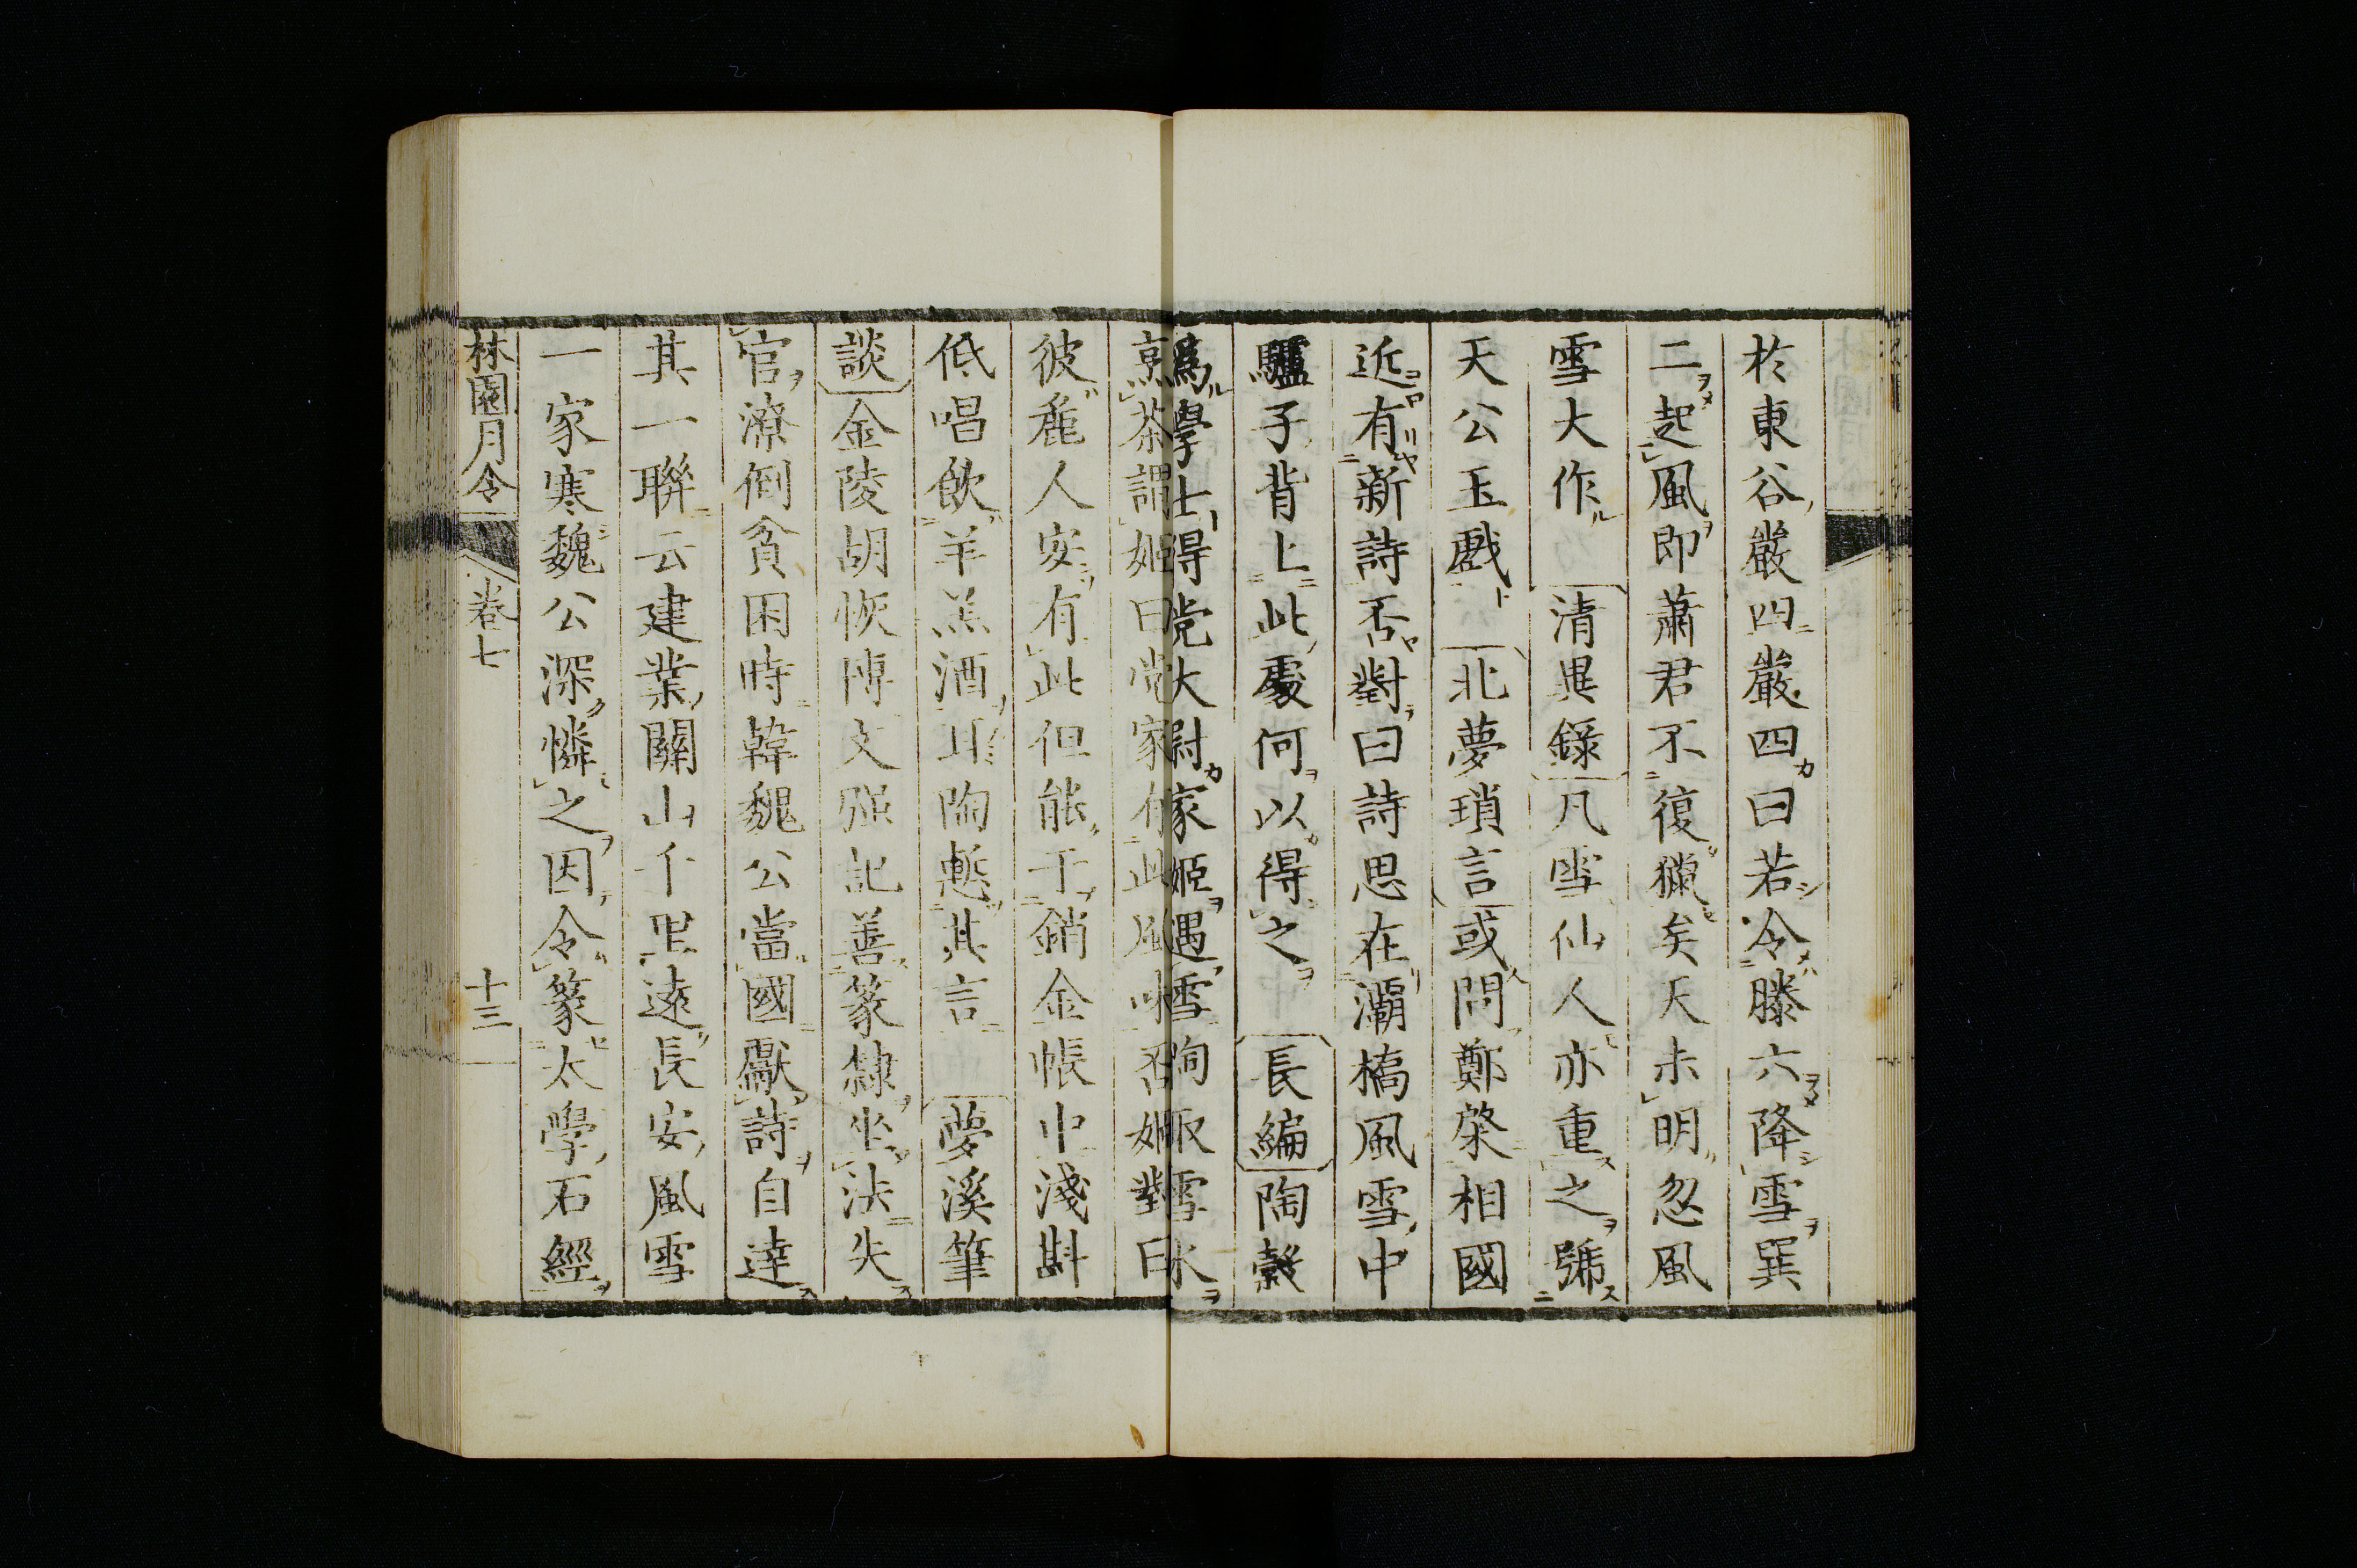 於東谷巖四巖四曰若令滕六降雪巽
二起風即蕭君不復獵矣天未明忽風
雪大作 清異錄 凡雪仙人亦重之號
天公玉戲 北夢瑣言 或問鄭綮相國
近有新詩否對曰詩思在灞橋風雪中
驢子背上此處何以得之 長編 陶糓
爲學士得党大尉家姬遇雪陶取雪水
烹茶謂姬曰党家有此風味否姬對曰
彼麁人安有此但能于銷金帳中淺斟
低唱飲羊羔酒耳陶慙其言 夢溪筆
談 金陵胡恢博文强記善篆隷坐法失
官潦倒貧困時韓魏公當國獻詩自達
其一聯云建業關山千里遠長安風雪
一家寒魏公深憐之因令篆太學石經
林園月令 卷七 十三